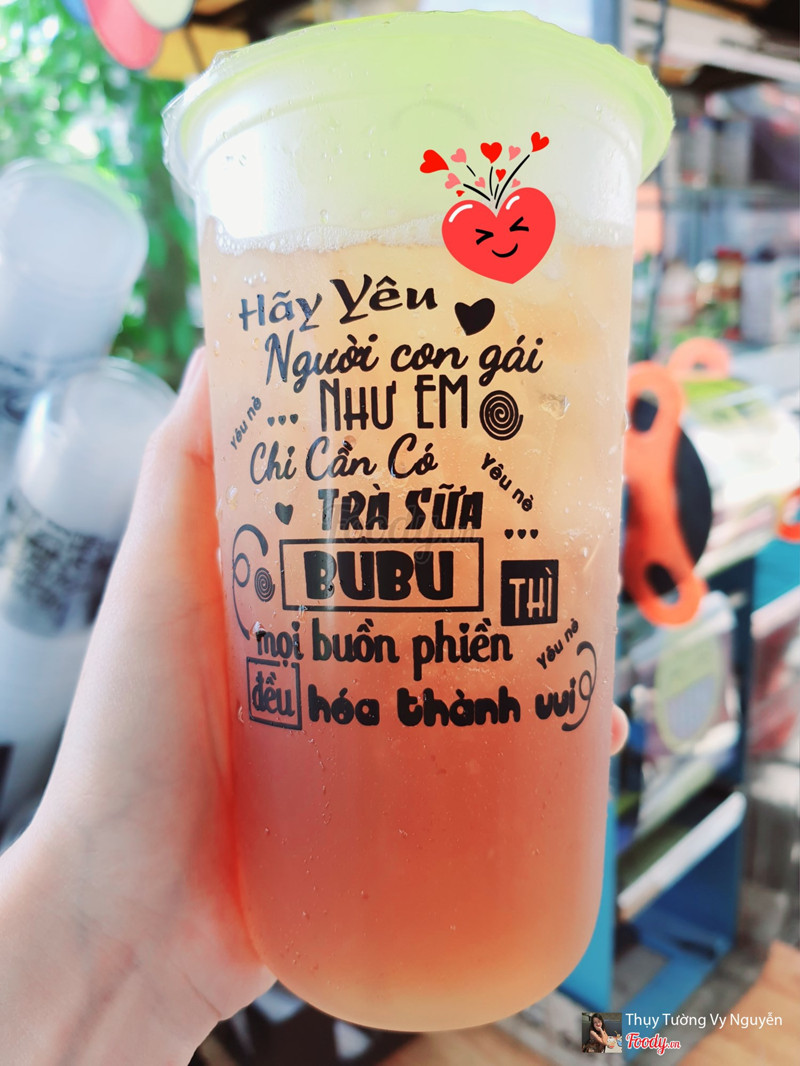 Hãy Yêu
Người con gái
Yêu nè
... NHƯ EM
Chỉ Cần Có
Yêu nè
TRÀ SỮA
...
Foody.vn
BUBU
THÌ
mọi buồn phiền
Yêu nè
đều hóa thành vui
Thụy Tường Vy Nguyễn
Foody.vn